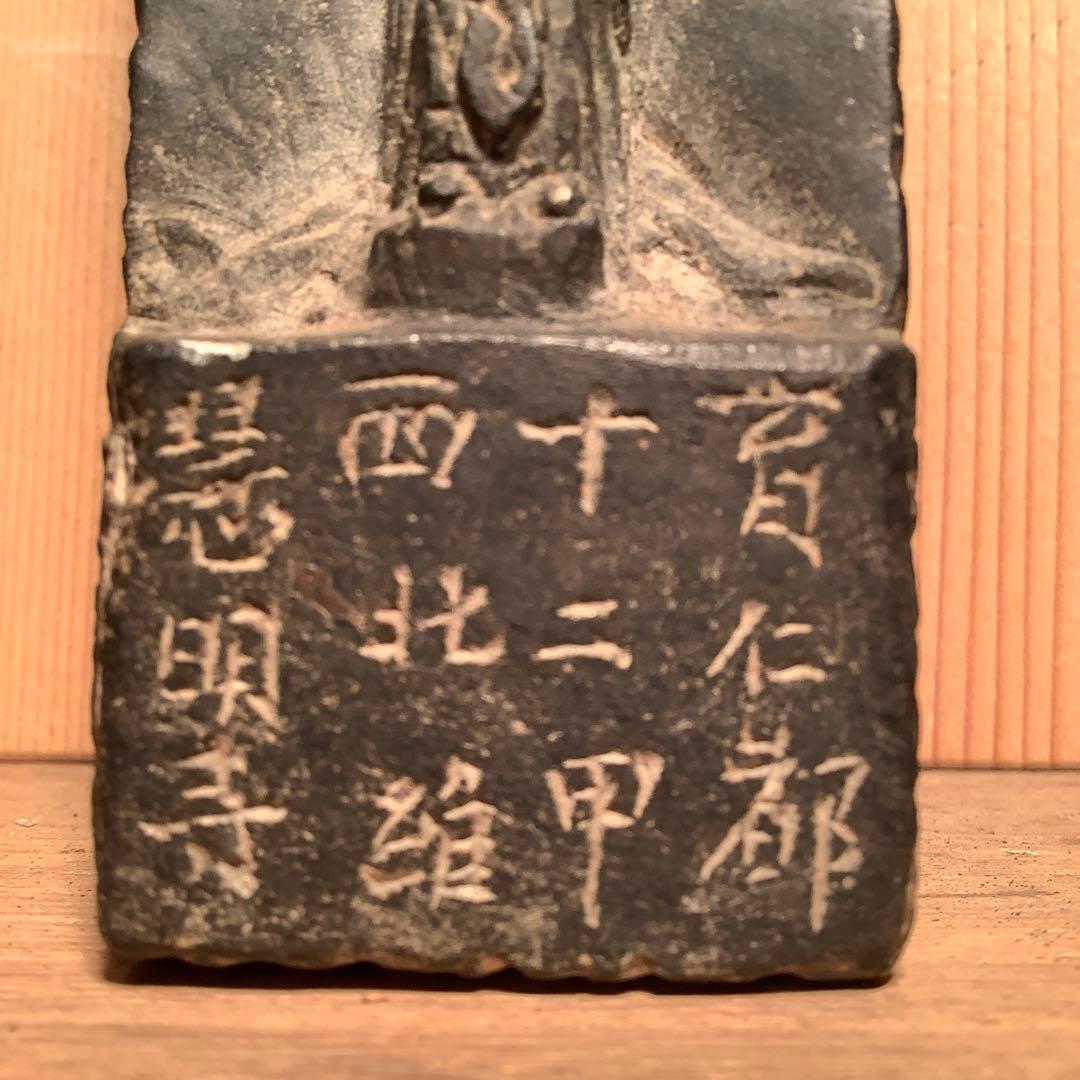 育仁都
十二甲
西北維
慧明寺